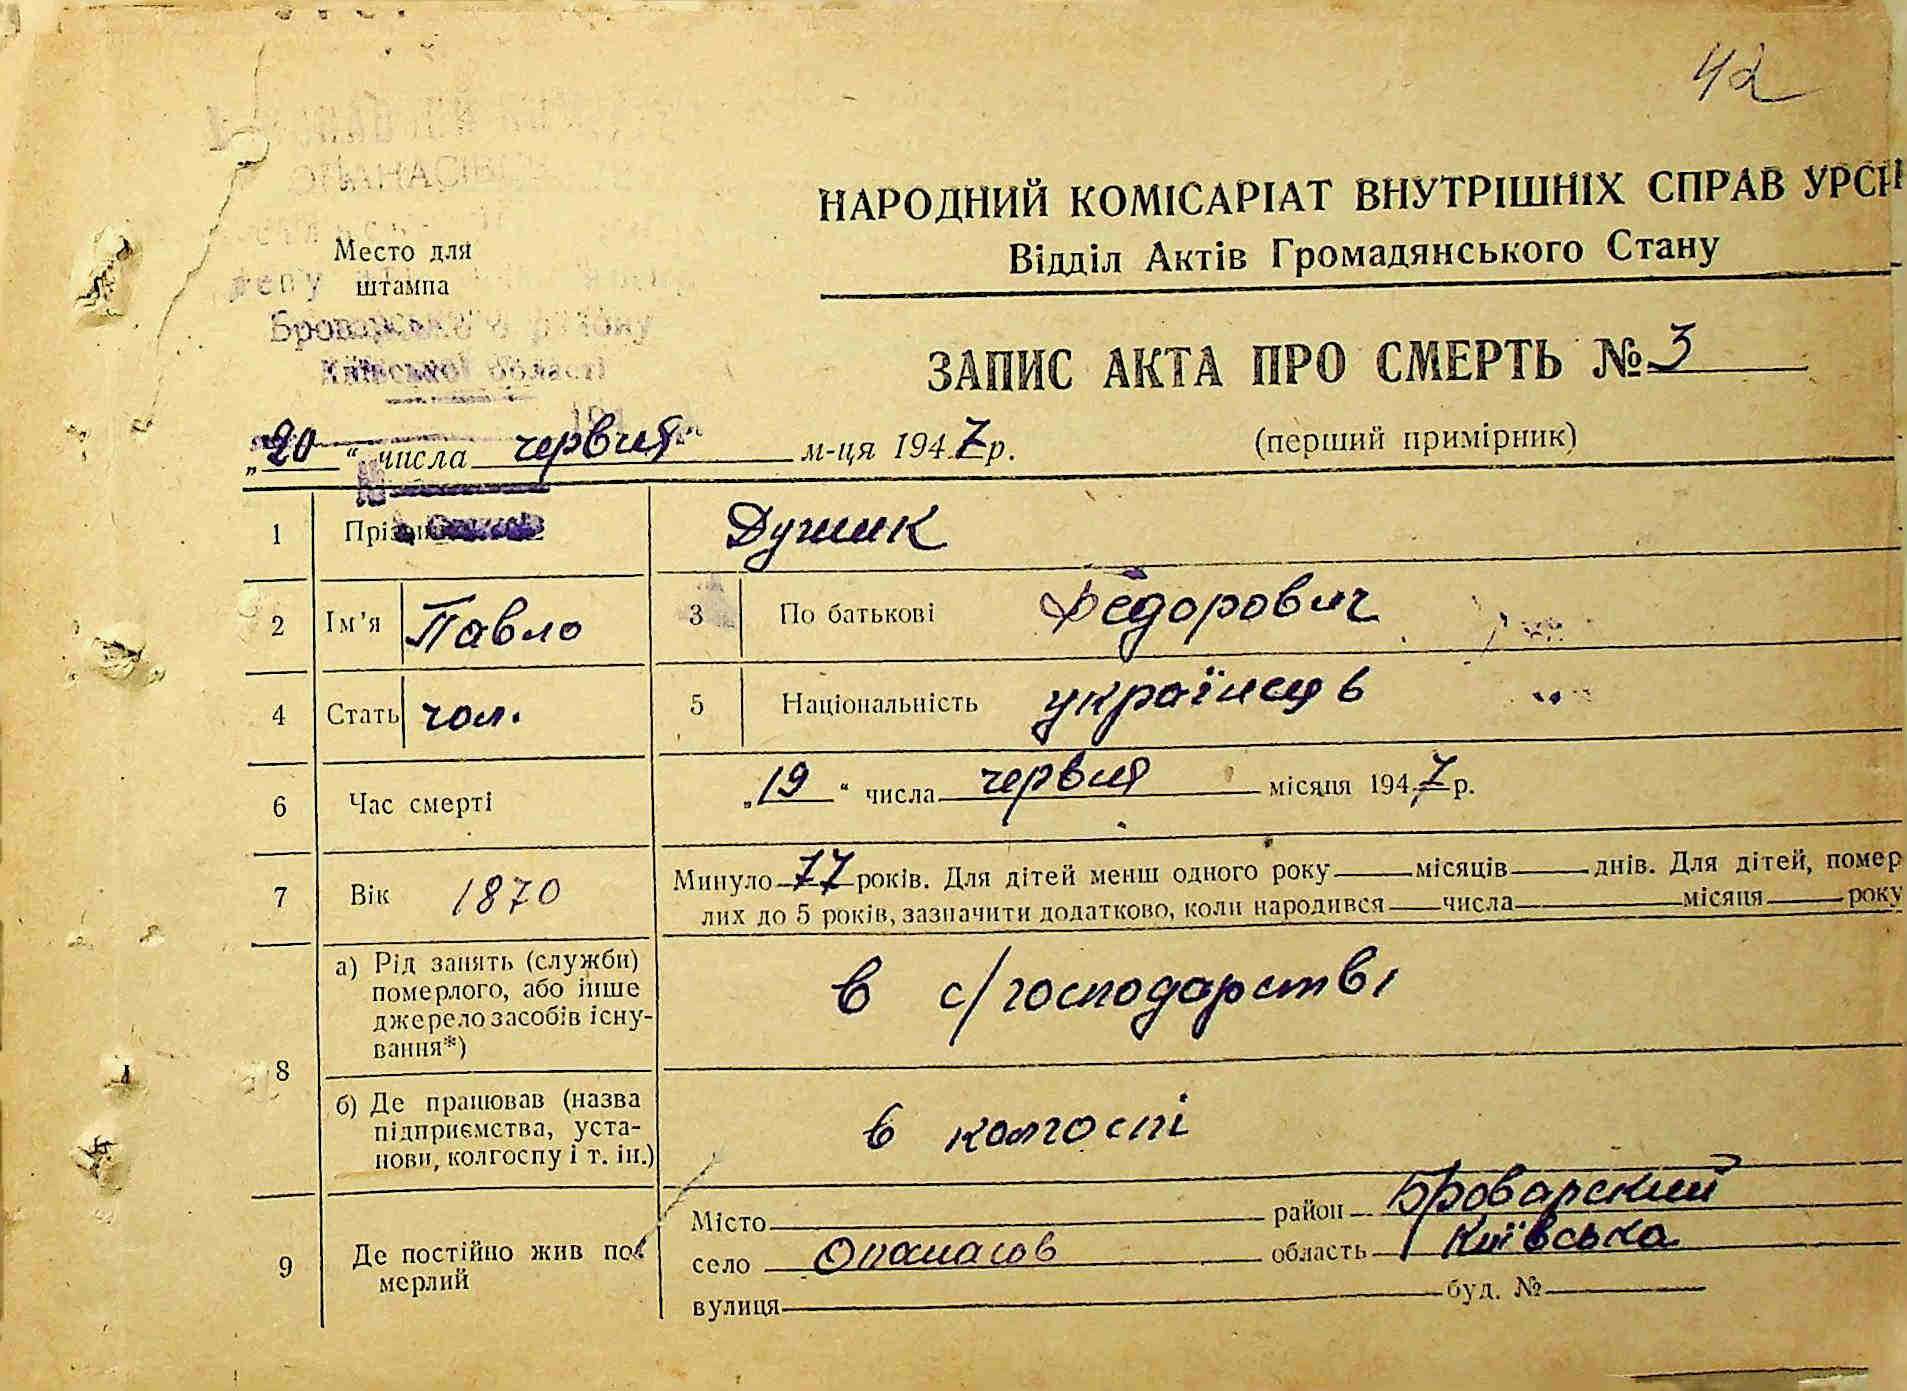 42
НАРОДНИЙ КОМІСАРІАТ ВНУТРІШНІХ СПРАВ УРСР
Відділ Актів Громадянського Стану
Место для
штампа
Броварського району
Київської області
ЗАПИС АКТА ПРО СМЕРТЬ № 3
(перший примірник)
„20“ числа червня м-ця 1947 р.
1 Душик
2 Ім'я Павло 3 По батькові Федорович
4 Стать чол. 5 Національність українець
6 Час смерті „19“ числа червня місяця 1947 р.
7 Вік 1870 Минуло 77 років. Для дітей менш одного року місяців днів. Для дітей, помер
лих до 5 років, зазначити додатково, коли народився числа місяця року
8 а) Рід занять (служби)
померлого, або інше
джерело засобів існу-
вання*)
в с/господарстві
б) Де працював (назва
підприємства, уста-
нови, колгоспу і т. ін.)
в колгоспі
9 Де постійно жив по-
мерлий
Місто район Броварский
село Опанасов область Київська
вулиця буд. №